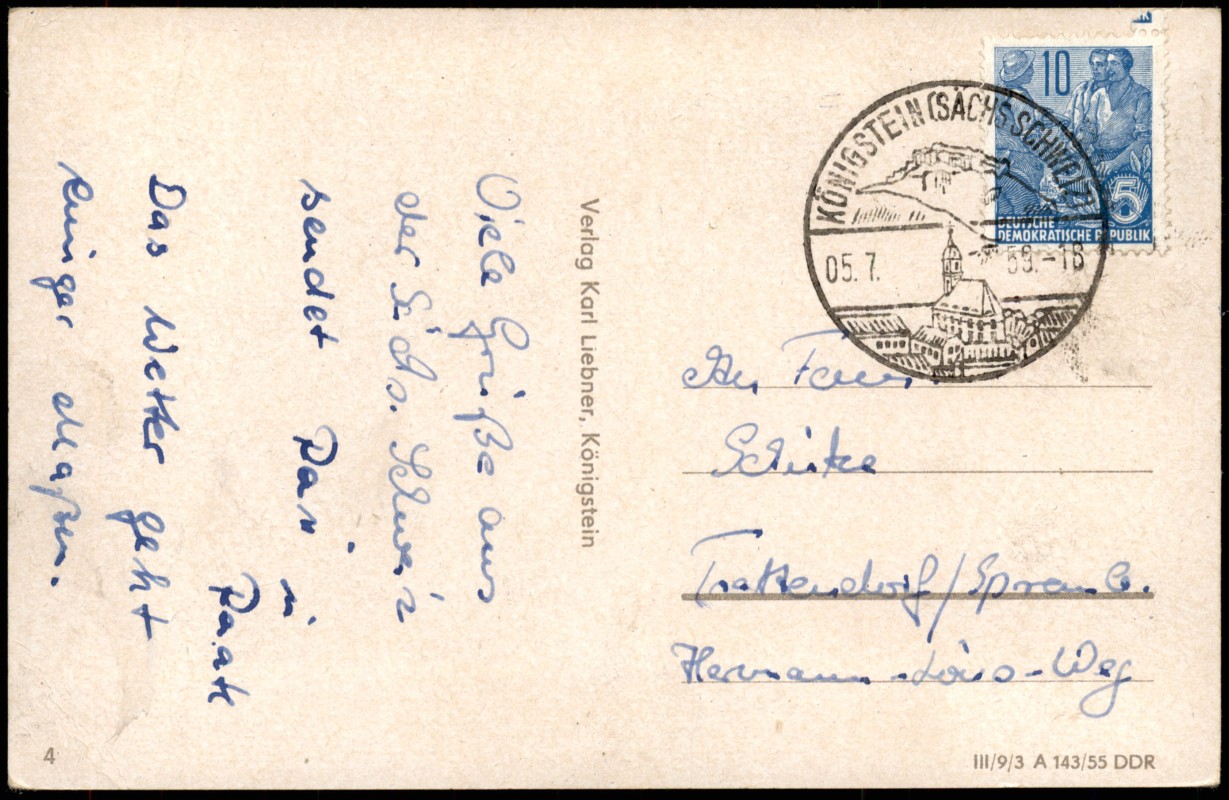 Viele Grüße aus
der Sächs. Schweiz
sendet
Das Wetter geht
einiger Maßen.
Verlag Karl Liebner, Königstein
KÖNIGSTEIN (SÄCHS. SCHWEIZ)
05.7. 59.-18
10
5
DEUTSCHE
DEMOKRATISCHE REPUBLIK
An Fam.
Trattendorf/Spremb.
Hermann-Löns-Weg
4
III/9/3 A 143/55 DDR